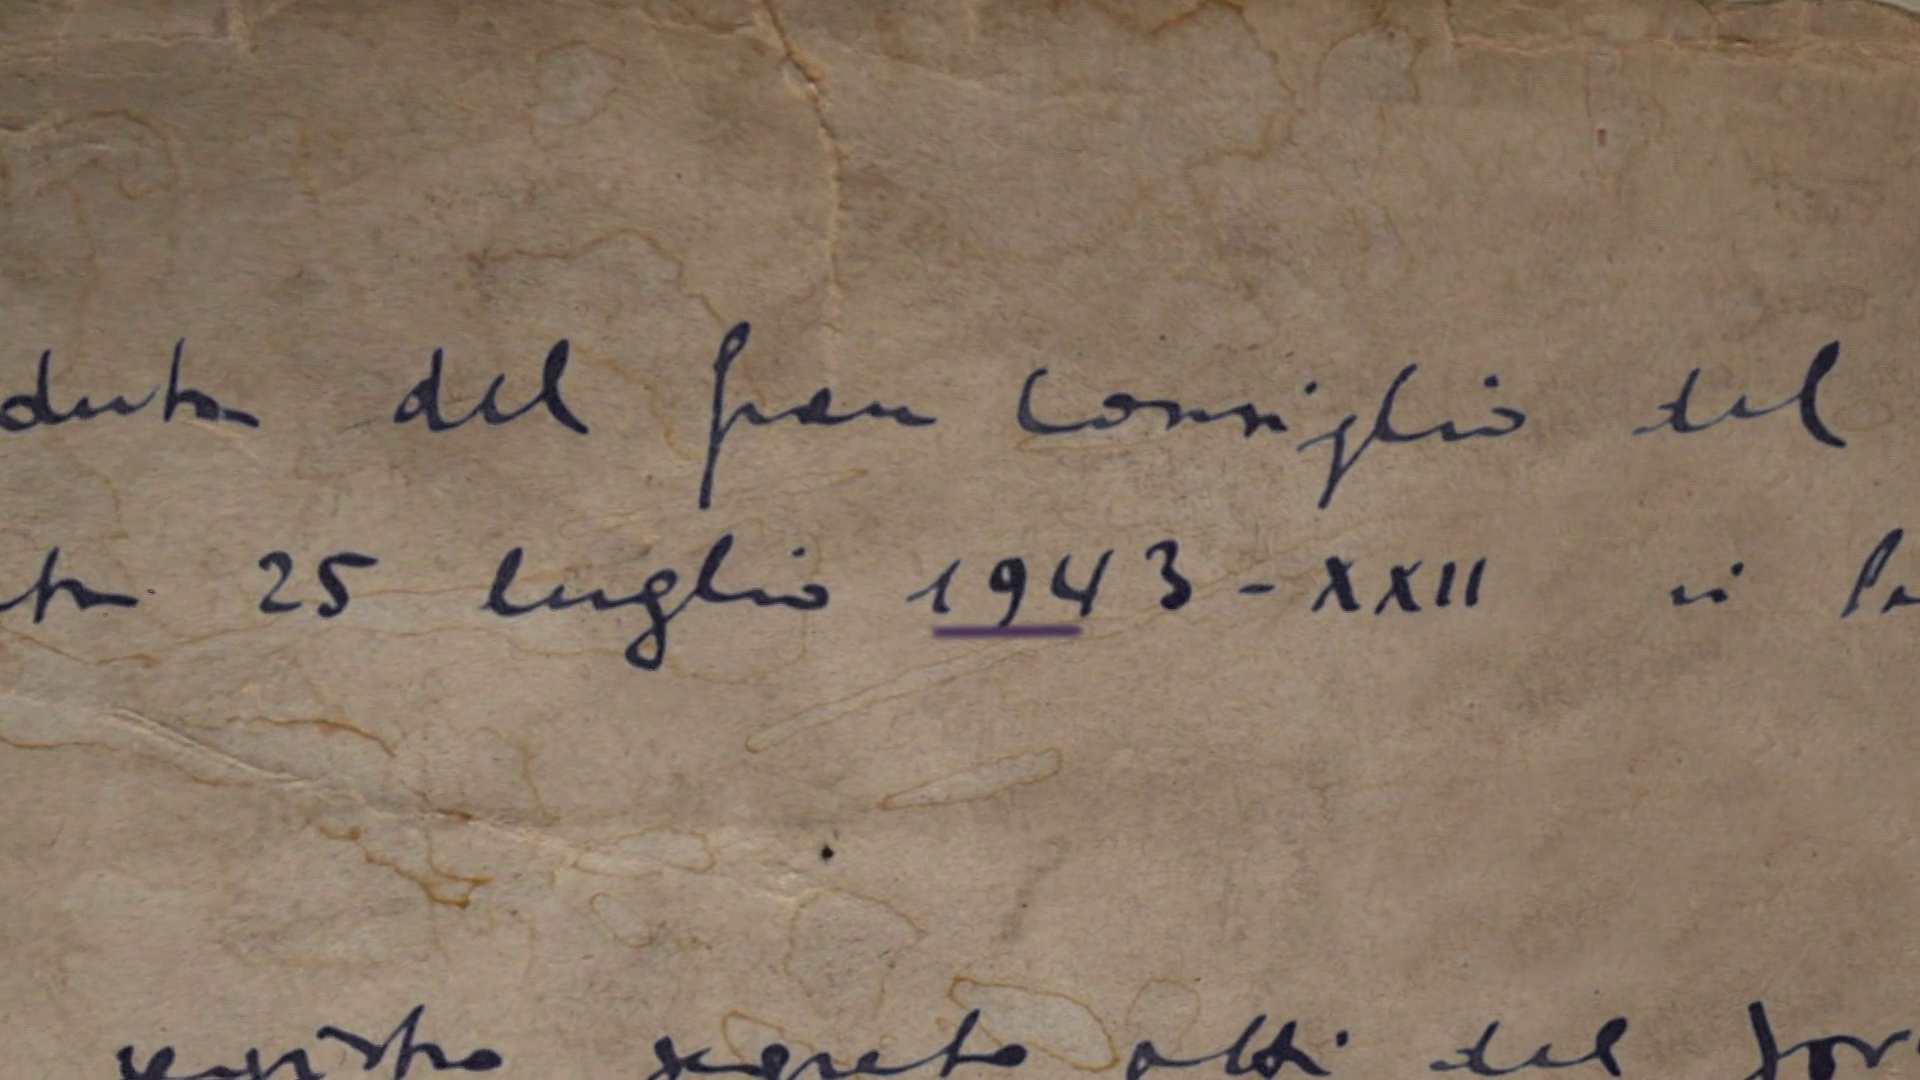 duta del gran Consiglio del
ta 25 luglio 1943-XXII in
registro segreto atti del